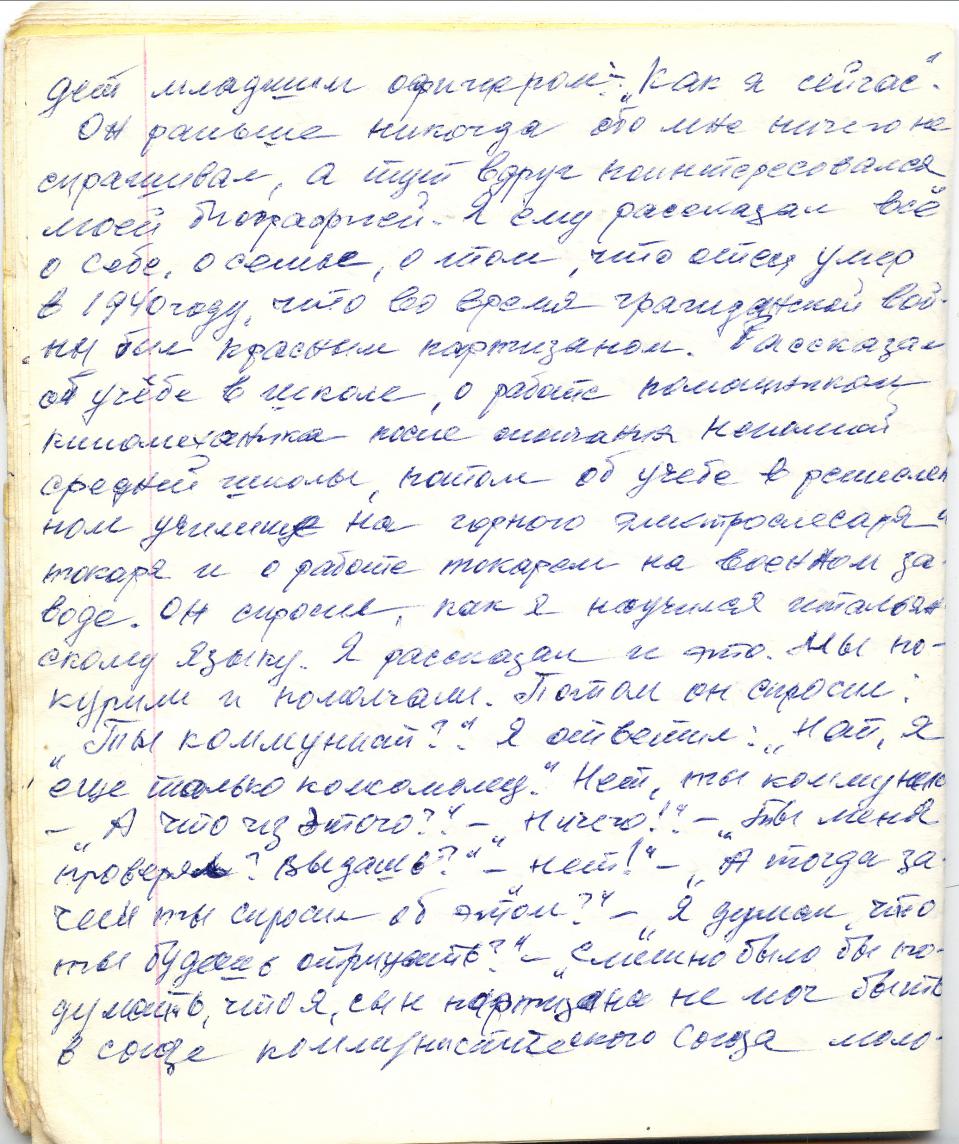 дет младшим офицером" - „Как я сейчас".
Он раньше никогда обо мне ничего не
спрашивал, а тут вдруг поинтересовался
моей биографией. Я ему рассказал всё
о себе, о семье, о том, что отец умер
в 1940 году, что во время гражданской вой-
ны был красным партизаном. Рассказал
об учёбе в школе, о работе помощником
киномеханика после окончания неполной
средней школы, потом об учебе в ремеслен
ном училище на горного электрослесаря и
токаря и о работе токарем на военном за-
воде. Он спросил, как я научился итальян
скому языку. Я рассказал и это. Мы по-
курили и помолчали. Потом он спросил:
„Ты коммунист?". Я ответил: „Нет, я
еще только комсомолец." Нет, ты коммунист
– „А что из этого?" – „Ничего!" – „Ты меня
проверял? Выдашь?" – нет!" – „А тогда за-
чем ты спросил об этом?" – „Я думал, что
ты будешь отрицать?" – „Смешно было бы по-
думать, что я, сын партизана не мог быть
в союзе коммунистического союза моло-